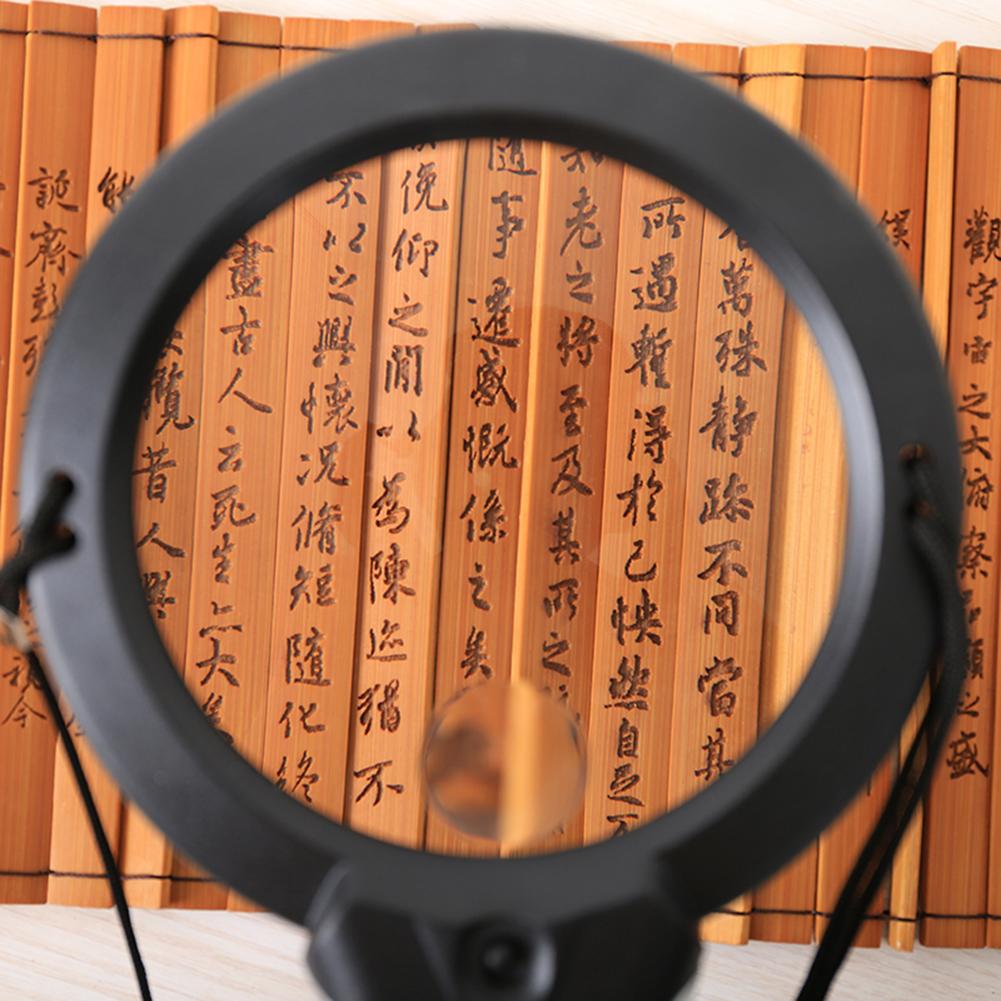 觀宇宙之大俯察類之盛
萬殊静躁不同當其
所遇暫得於己怏然自足不
老之將至及其所之
隨事遷感慨係之矣
俛仰之間以為陳迹猶不
不以之興懷况脩短隨化終
盡古人云死生亦大矣
攬昔人興
能
誕齊彭殤
視今